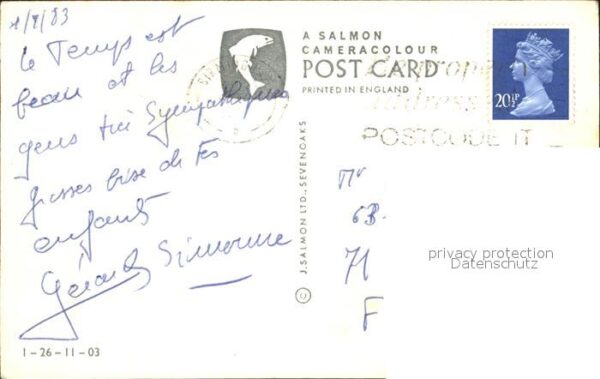 1/8/83
Le Temps est
beau et les
gens très Sympathiques
Grosses bise de Tes
enfants
Gérard Simonne
1-26-11-03
A SALMON
CAMERACOLOUR
POST CARD
PRINTED IN ENGLAND
© J. SALMON LTD., SEVENOAKS
20½P
properly
address
POSTCODE IT
Mr
63
71
F
privacy protection
Datenschutz